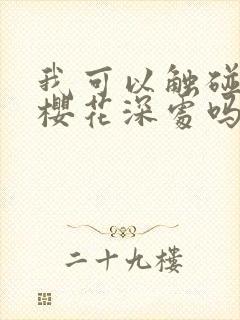 我可以触碰
樱花深处吗
二十九楼